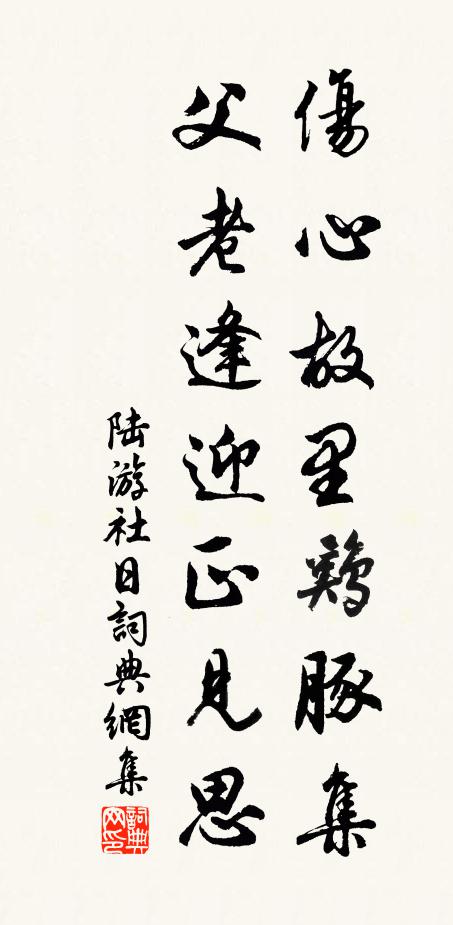 傷心故里鷄豚集
父老逢迎正見思
陆游社日詞典網集
詞典網印